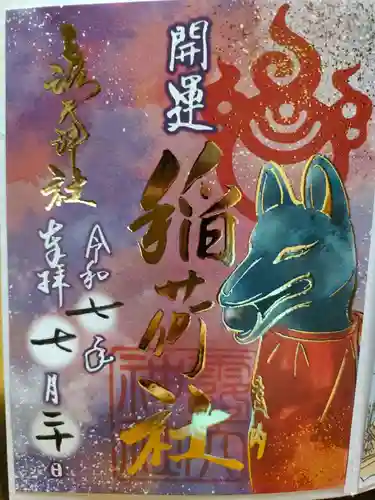 開運
稲荷社
天神社
奉拝
令和七年
七月二十日